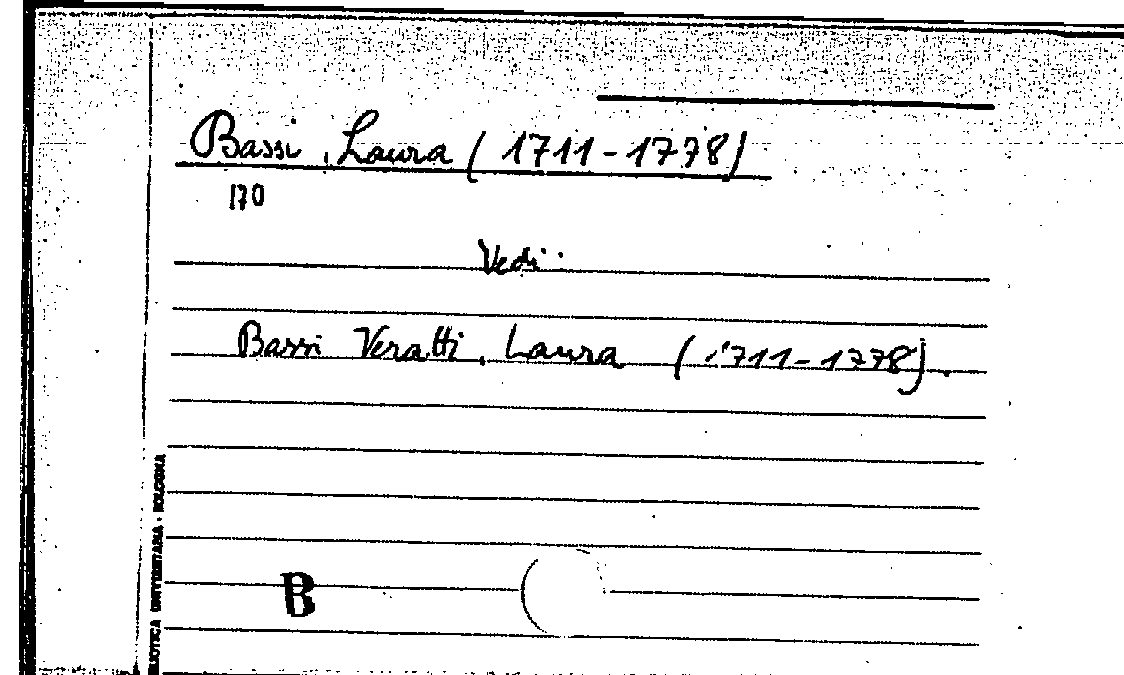 Bassi, Laura (1711-1778)
170
Vedi:
Bassi Veratti, Laura (1711-1778).
B
BIBLIOTECA UNIVERSITARIA - BOLOGNA